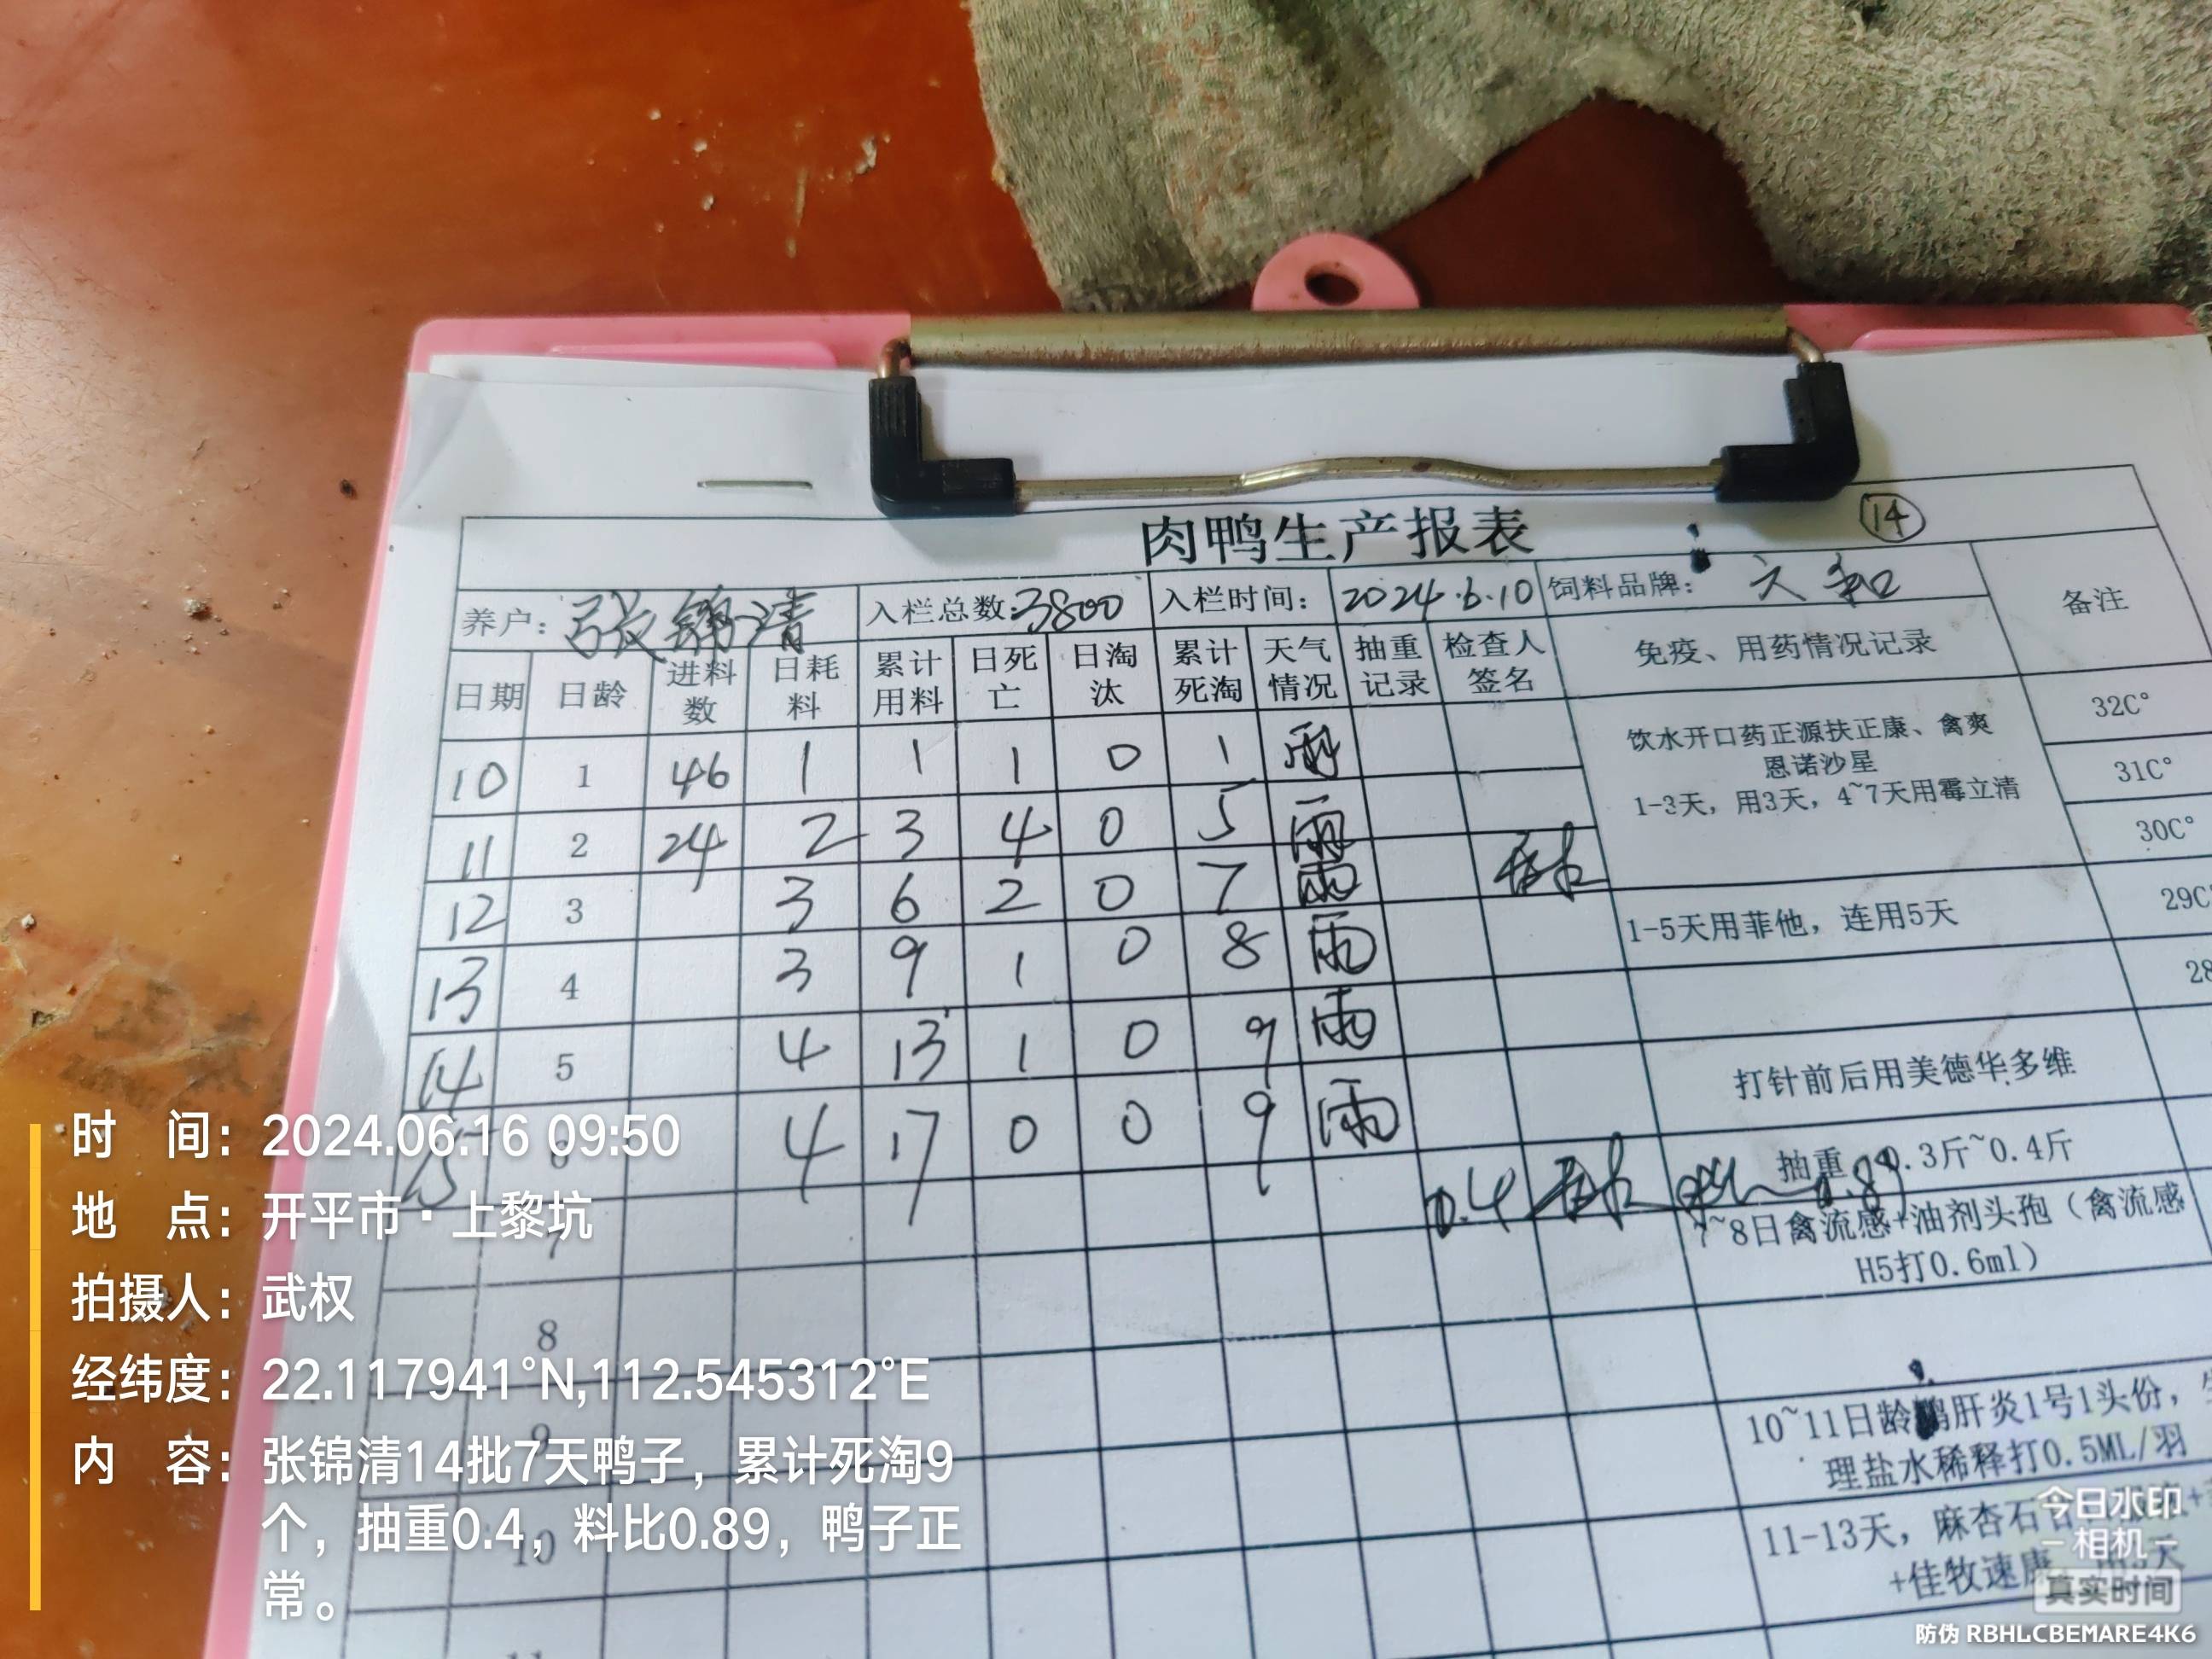 肉鸭生产报表
14
养户：张锦清 入栏总数：3800 入栏时间： 2024.6.10 饲料品牌： 六和 备注
日期 日龄 进料数 日耗料 累计用料 日死亡 日淘汰 累计死淘 天气情况 抽重记录 检查人签名 免疫、用药情况记录
10 1 46 1 1 1 0 1 雨
11 2 24 2 3 4 0 5 雨
12 3 3 6 2 0 7 雨
13 4 3 9 1 0 8 雨
14 5 4 13 1 0 9 雨
15 6 4 17 0 0 9 雨
7 0.4 0.89
8
9
10
11
饮水开口药正源扶正康、禽爽
恩诺沙星
1-3天，用3天，4~7天用霉立清
1-5天用菲他，连用5天
打针前后用美德华多维
抽重 0.3斤~0.4斤
7~8日禽流感+油剂头孢（禽流感
H5打0.6ml）
10~11日龄鸭肝炎1号1头份，
理盐水稀释打0.5ML/羽
11-13天，麻杏石
+佳牧速康
32C°
31C°
30C°
29C°
28
时 间：2024.06.16 09:50
地 点：开平市·上黎坑
拍摄人：武权
经纬度：22.117941°N,112.545312°E
内 容：张锦清14批7天鸭子，累计死淘9
个，抽重0.4，料比0.89，鸭子正
常。
今日水印
-相机-
真实时间
防伪 RBHLCBEMARE4K6